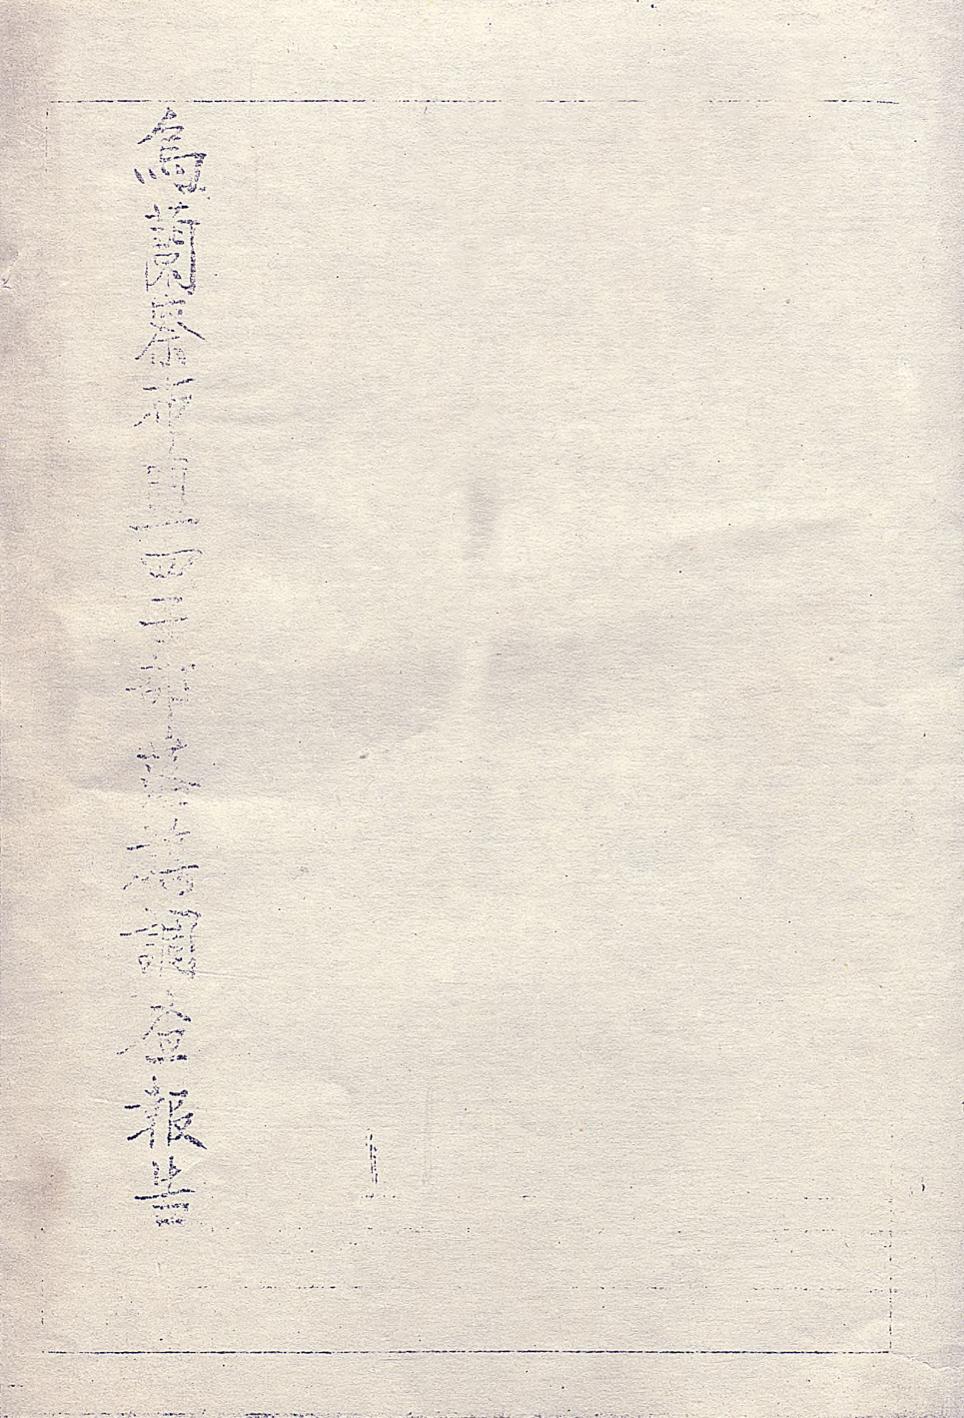 烏蘭察布盟四子部落旗調查報告